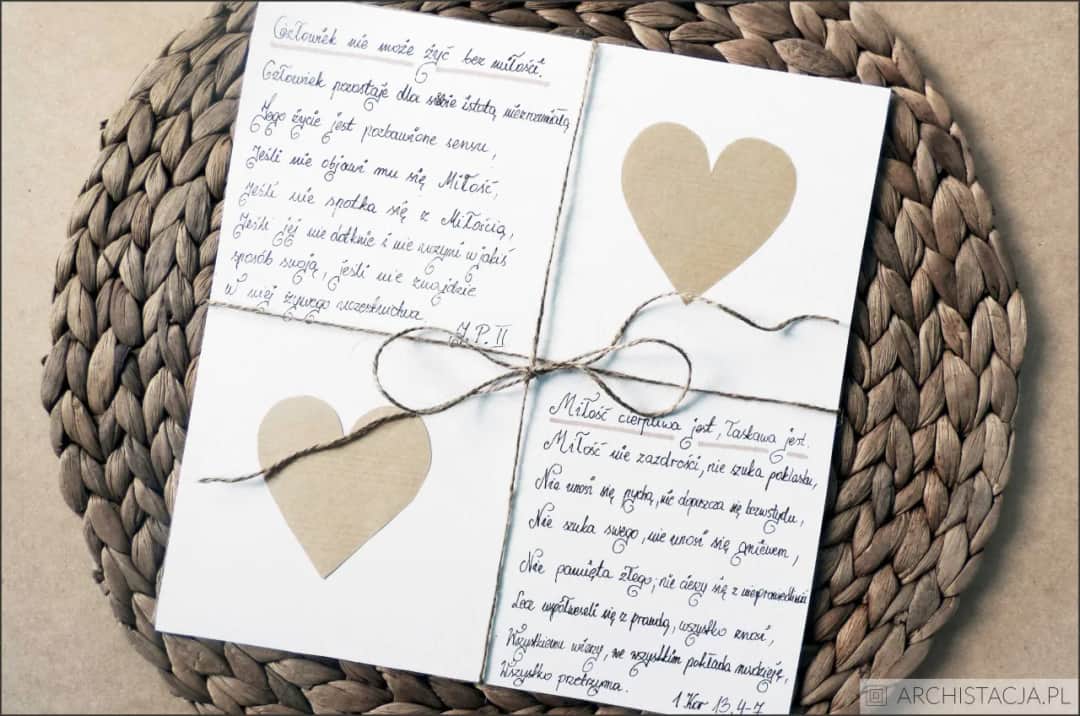 Człowiek nie może żyć bez miłości.
Człowiek pozostaje dla siebie istotą niezrozumiałą
Jego życie jest pozbawione sensu,
Jeśli nie objawi mu się Miłość,
Jeśli nie spotka się z Miłością,
Jeśli jej nie dotknie i nie uczyni w jakiś
sposób swoją, jeśli nie znajdzie
w niej żywego uczestnictwa.
J.P. II
Miłość cierpliwa jest, łaskawa jest.
Miłość nie zazdrości, nie szuka poklasku,
Nie unosi się pychą, nie dopuszcza się bezwstydu,
Nie szuka swego, nie unosi się gniewem,
Nie pamięta złego; nie cieszy się z niesprawiedliwości
Lecz współweseli się z prawdą, wszystko znosi,
Wszystkiemu wierzy, we wszystkim pokłada nadzieję,
Wszystko przetrzyma.
1 Kor 13, 4-7
ARCHISTACJA.PL